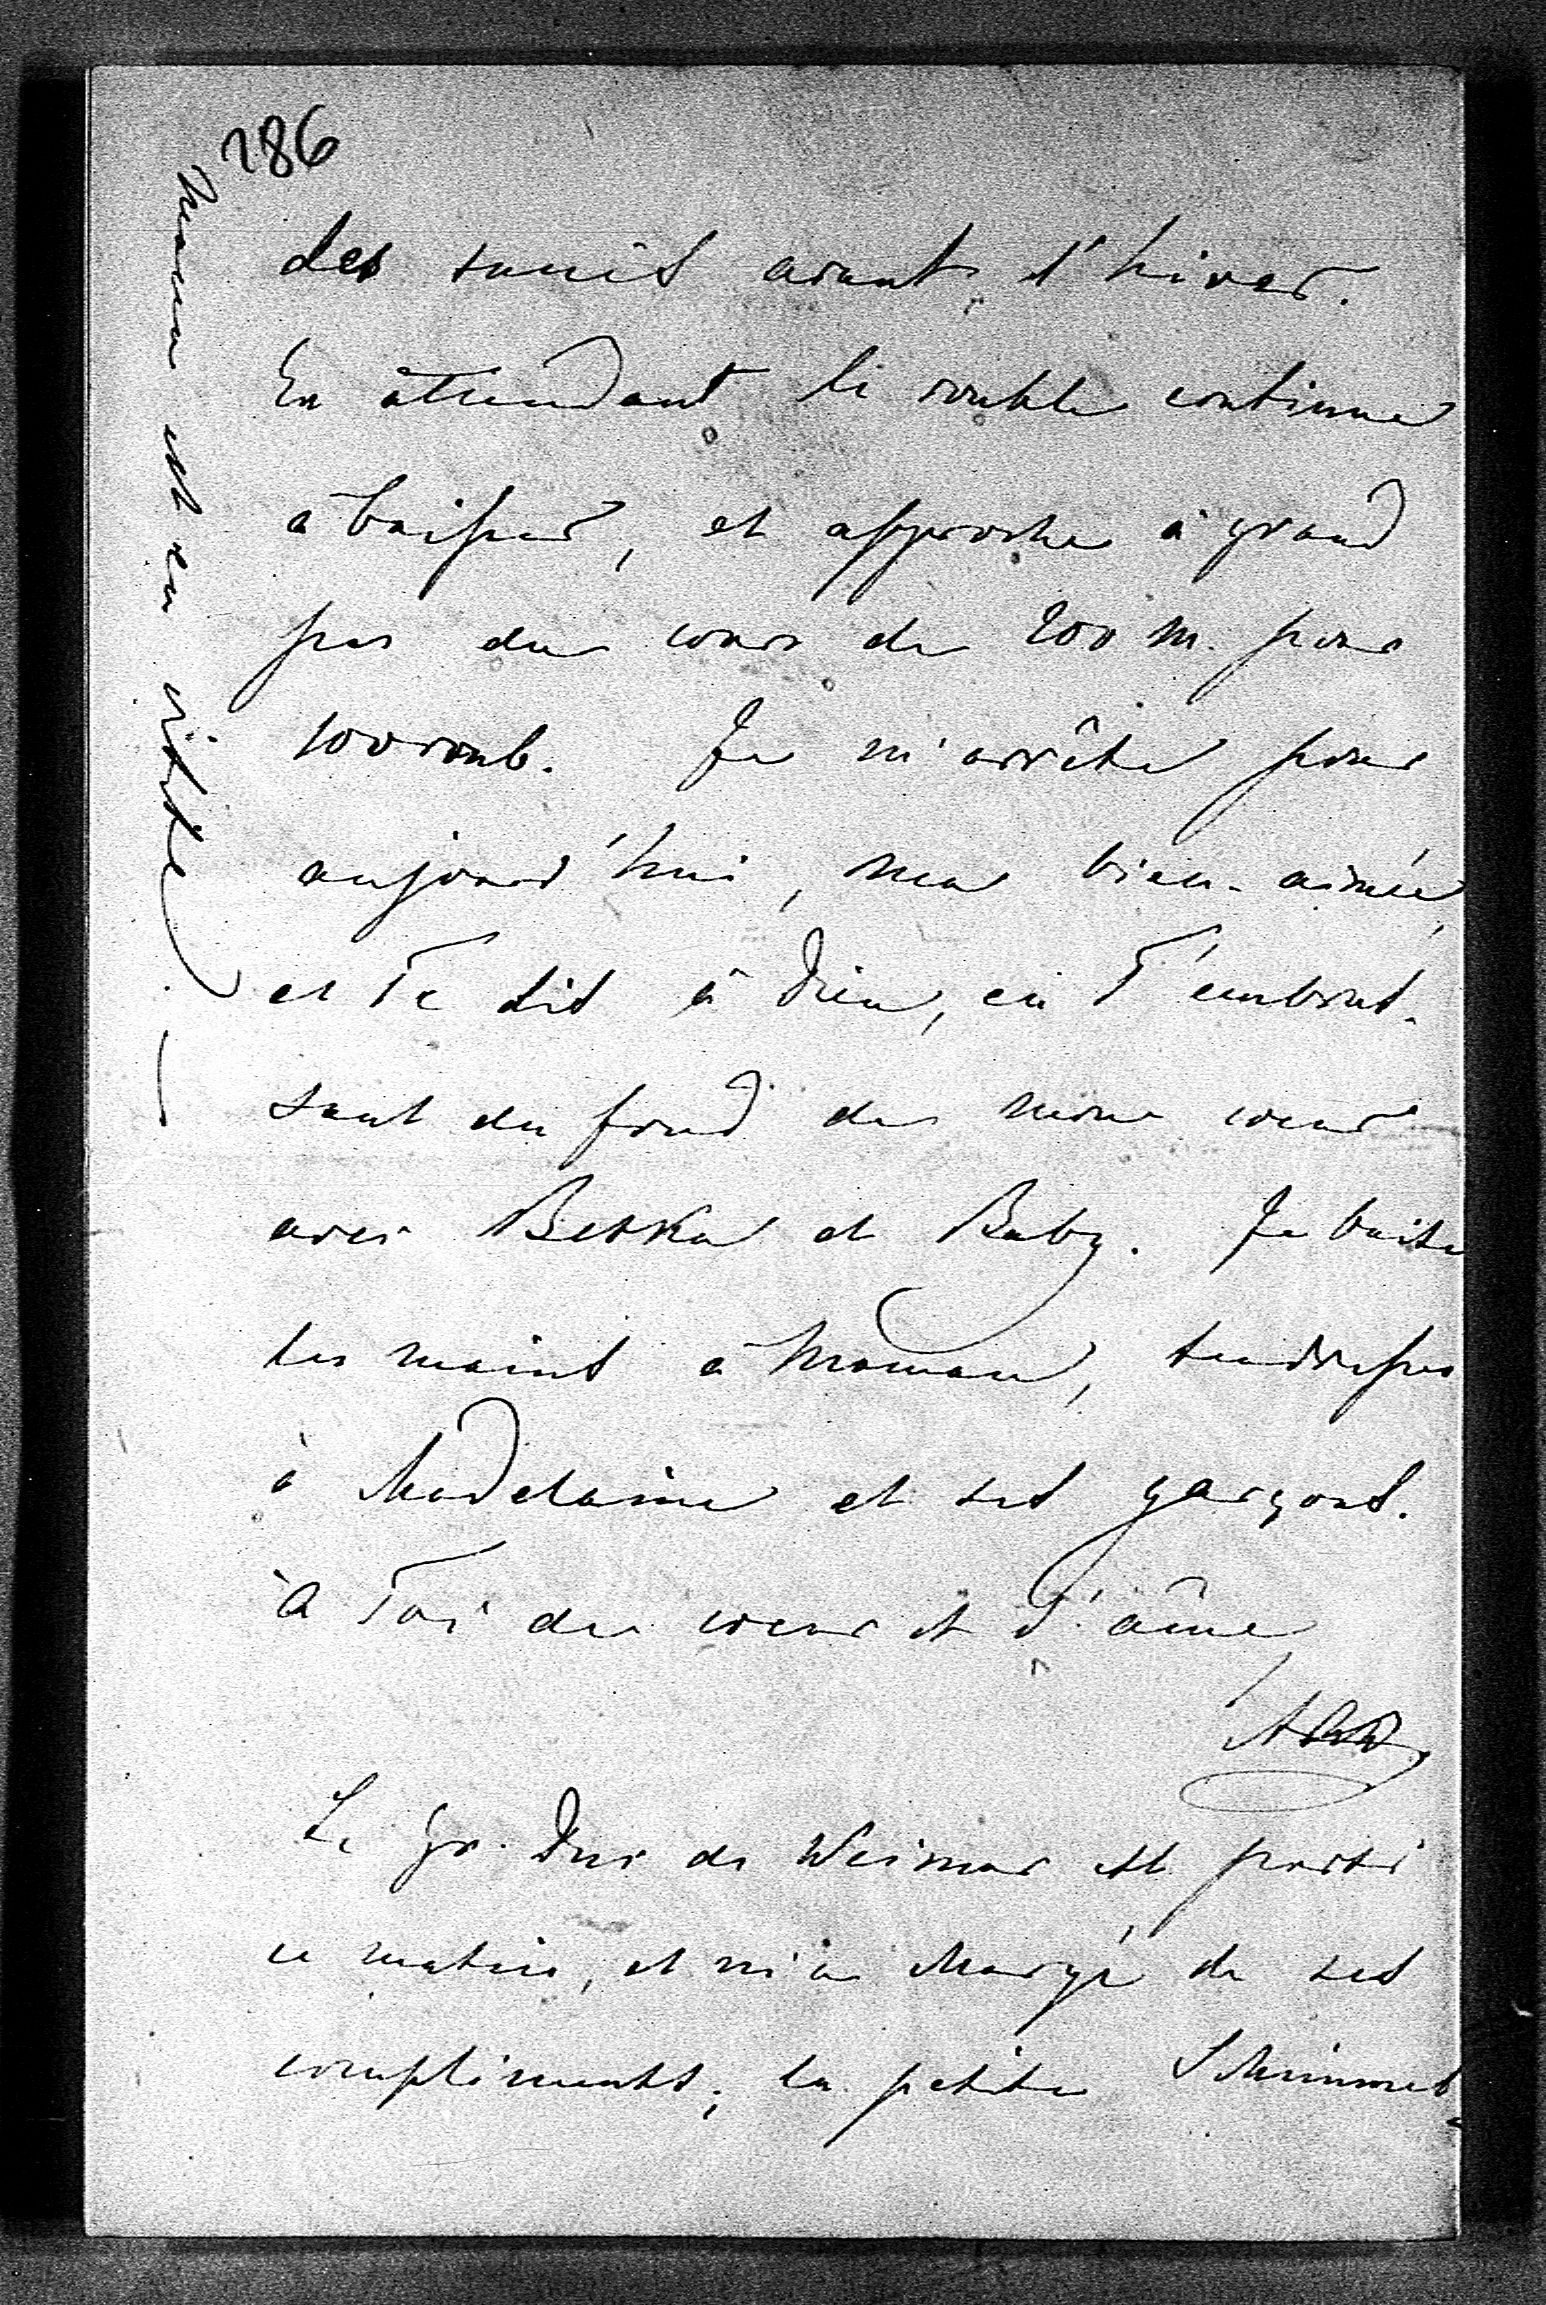 286
des soucis avant l'hiver.
En attendant le rouble continue
à baisser, et approche à grand
pas du cours de 200 m. pour
100 roub. Je m'arrête pour
aujourd'hui, ma bien-aimée,
et Te dis à Dieu, en T'embras-
sant du fond de mon coeur
avec Beska et Baby. Je baise
les mains à Maman, tendresses
à Madelaine et ses garçons.
à Toi de coeur et d'âme,
Le Gr. Duc de Weimar est parti
ce matin, et m'a chargé de ses
compliments; la petite Schimmel-
mann est en visite.